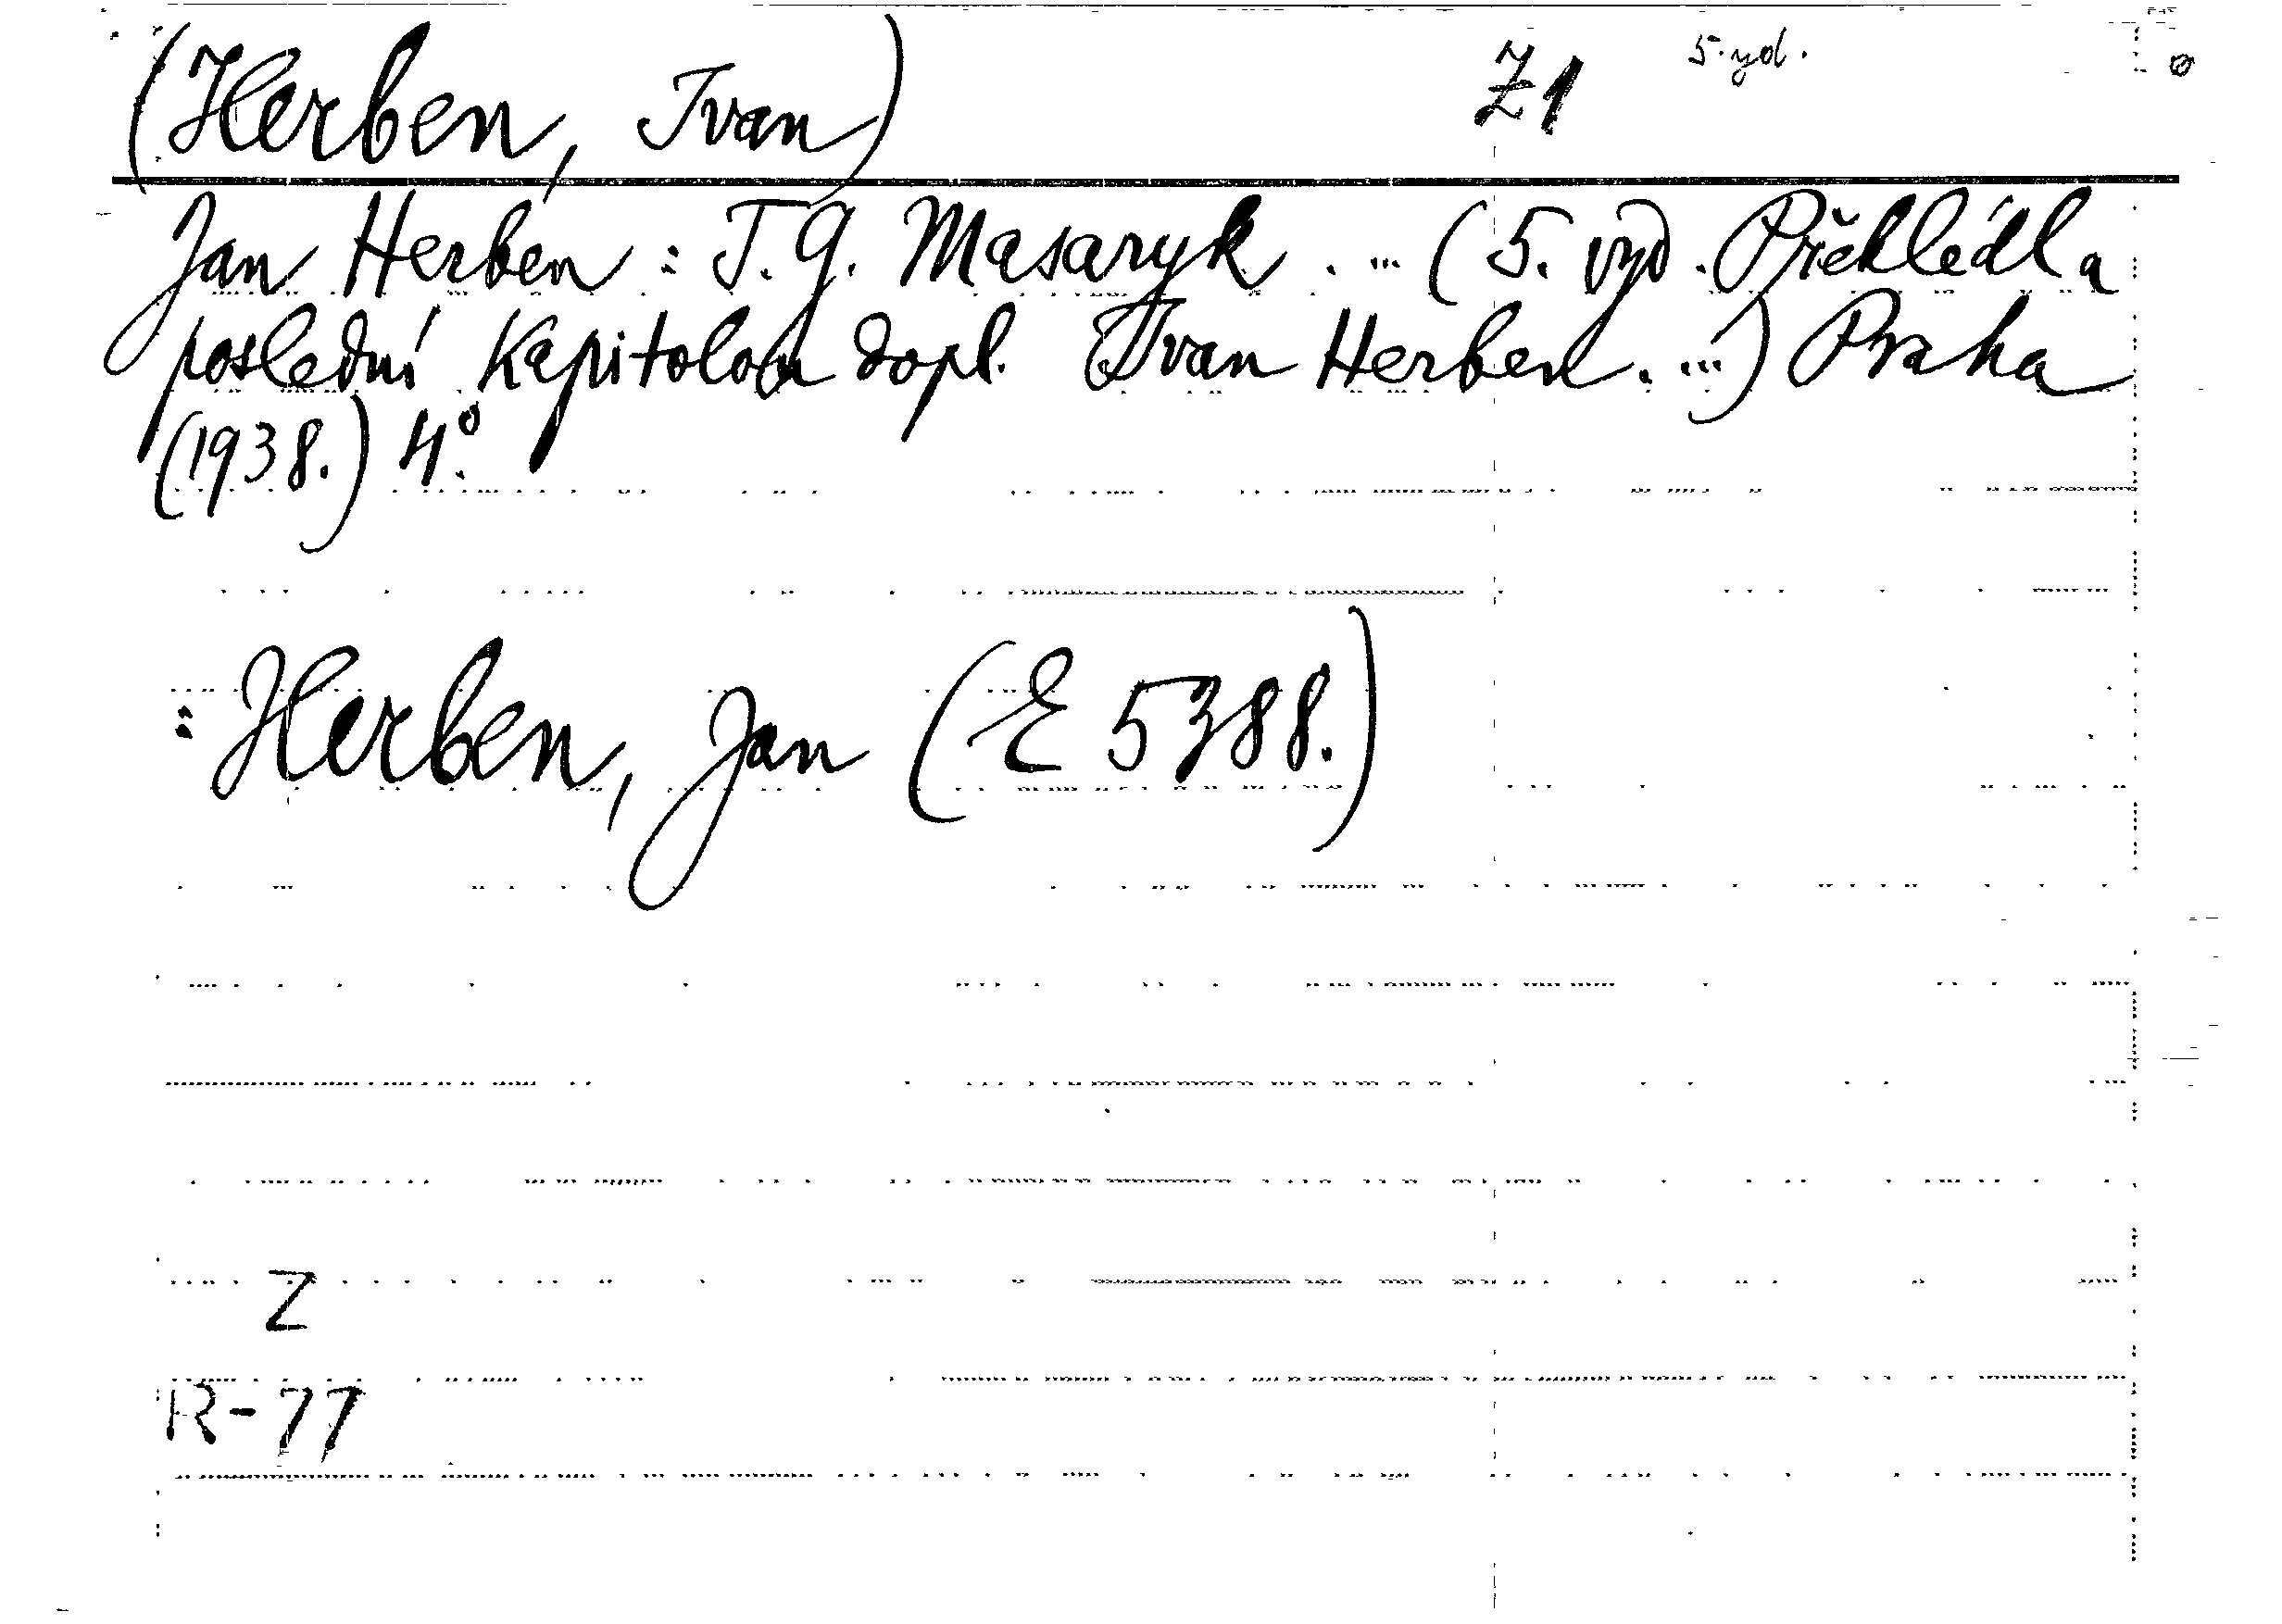 (Herben, Ivan) Z1 5. vyd.
Jan Herben : T. G. Masaryk. ... (5. vyd. Přehlédl a
poslední kapitolou dopl. Ivan Herben. ...) Praha
(1938.) 4°.
: Herben, Jan (E 5388.)
Z
R-77